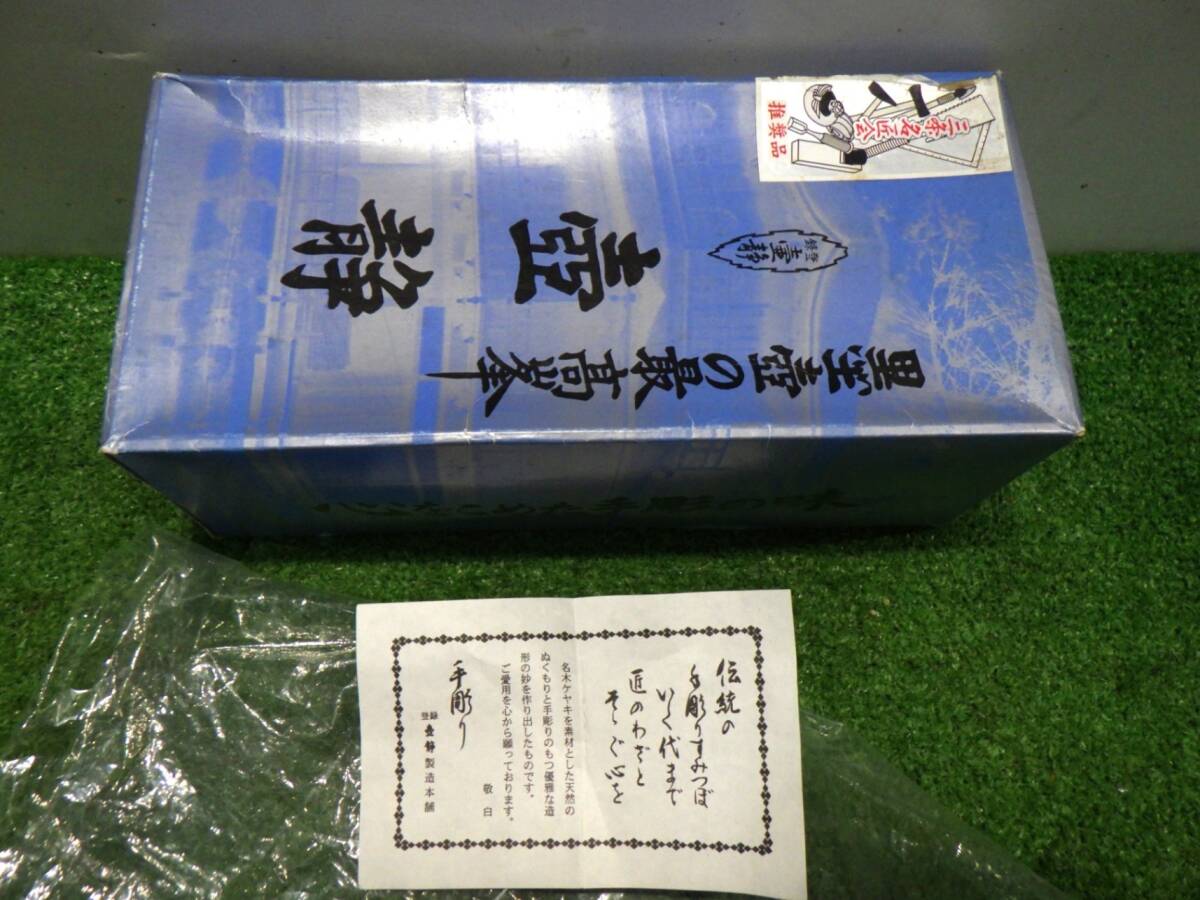 三条名匠会
推奨品
登録 壺静
壺静
墨壺の最高峰
心をこめた手彫の味
伝統の
手彫りすみつぼ
いく代まで
匠のわざと
そゝぐ心を
名木ケヤキを素材とした天然の
ぬくもりと手彫りのもつ優雅な造
形の妙を作り出したものです。
ご愛用を心から願っております。
敬白
手彫り
登録 壺静製造本舗